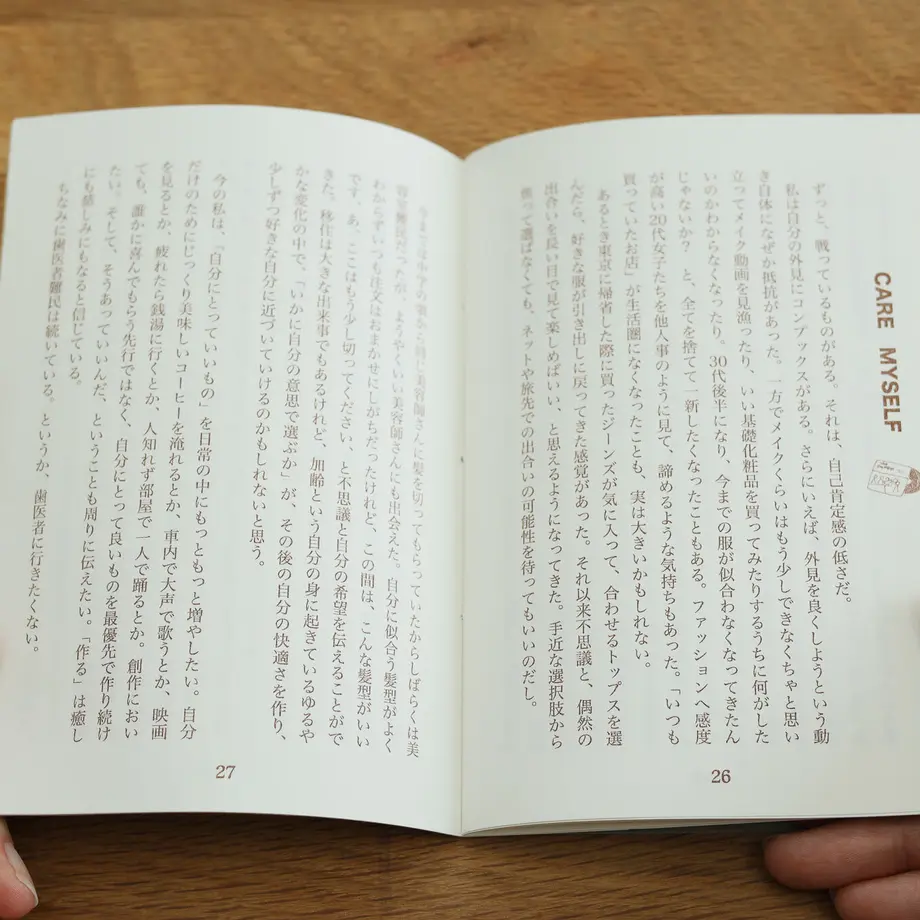 CARE MYSELF
ずっと、戦っているものがある。それは、自己肯定感の低さだ。
私は自分の外見にコンプレックスがある。さらにいえば、外見を良くしようという動
き自体になぜか抵抗があった。一方でメイクくらいはもう少しできなくちゃと思い
立ってメイク動画を見漁ったり、いい基礎化粧品を買ってみたりするうちに何がした
いのかわからなくなったり。30代後半になり、今までの服が似合わなくなってきたん
じゃないか? と、全てを捨てて一新したくなったこともある。ファッションへ感度
が高い20代女子たちを他人事のように見て、諦めるような気持ちもあった。「いつも
買っていたお店」が生活圏になくなったことも、実は大きいかもしれない。
あるとき東京に帰省した際に買ったジーンズが気に入って、合わせるトップスを選
んだら、好きな服が引き出しに戻ってきた感覚があった。それ以来不思議と、偶然の
出合いを長い目で見て楽しめばいい、と思えるようになってきた。手近な選択肢から
焦って選ばなくても、ネットや旅先での出合いの可能性を待ってもいいのだし。
26
美容師さんに髪を切ってもらっていたからしばらくは美
容室難民だったが、ようやくいい美容師さんにも出会えた。自分に似合う髪型がよく
わからずいつも注文はおまかせにしがちだったけれど、この間は、こんな髪型がいい
です、あ、ここはもう少し切ってください、と不思議と自分の希望を伝えることがで
きた。移住は大きな出来事でもあるけれど、加齢という自分の身に起きているゆるや
かな変化の中で、「いかに自分の意思で選ぶか」が、その後の自分の快適さを作り、
少しずつ好きな自分に近づいていけるのかもしれないと思う。
今の私は、「自分にとっていいもの」を日常の中にもっともっと増やしたい。自分
だけのためにじっくり美味しいコーヒーを淹れるとか、車内で大声で歌うとか、映画
を見るとか、疲れたら銭湯に行くとか、人知れず部屋で一人で踊るとか。創作におい
ても、誰かに喜んでもらう先行ではなく、自分にとって良いものを最優先で作り続け
たい。そして、そうあっていいんだ、ということも周りに伝えたい。「作る」は癒し
にも慈しみにもなると信じている。
ちなみに歯医者難民は続いている。というか、歯医者に行きたくない。
27